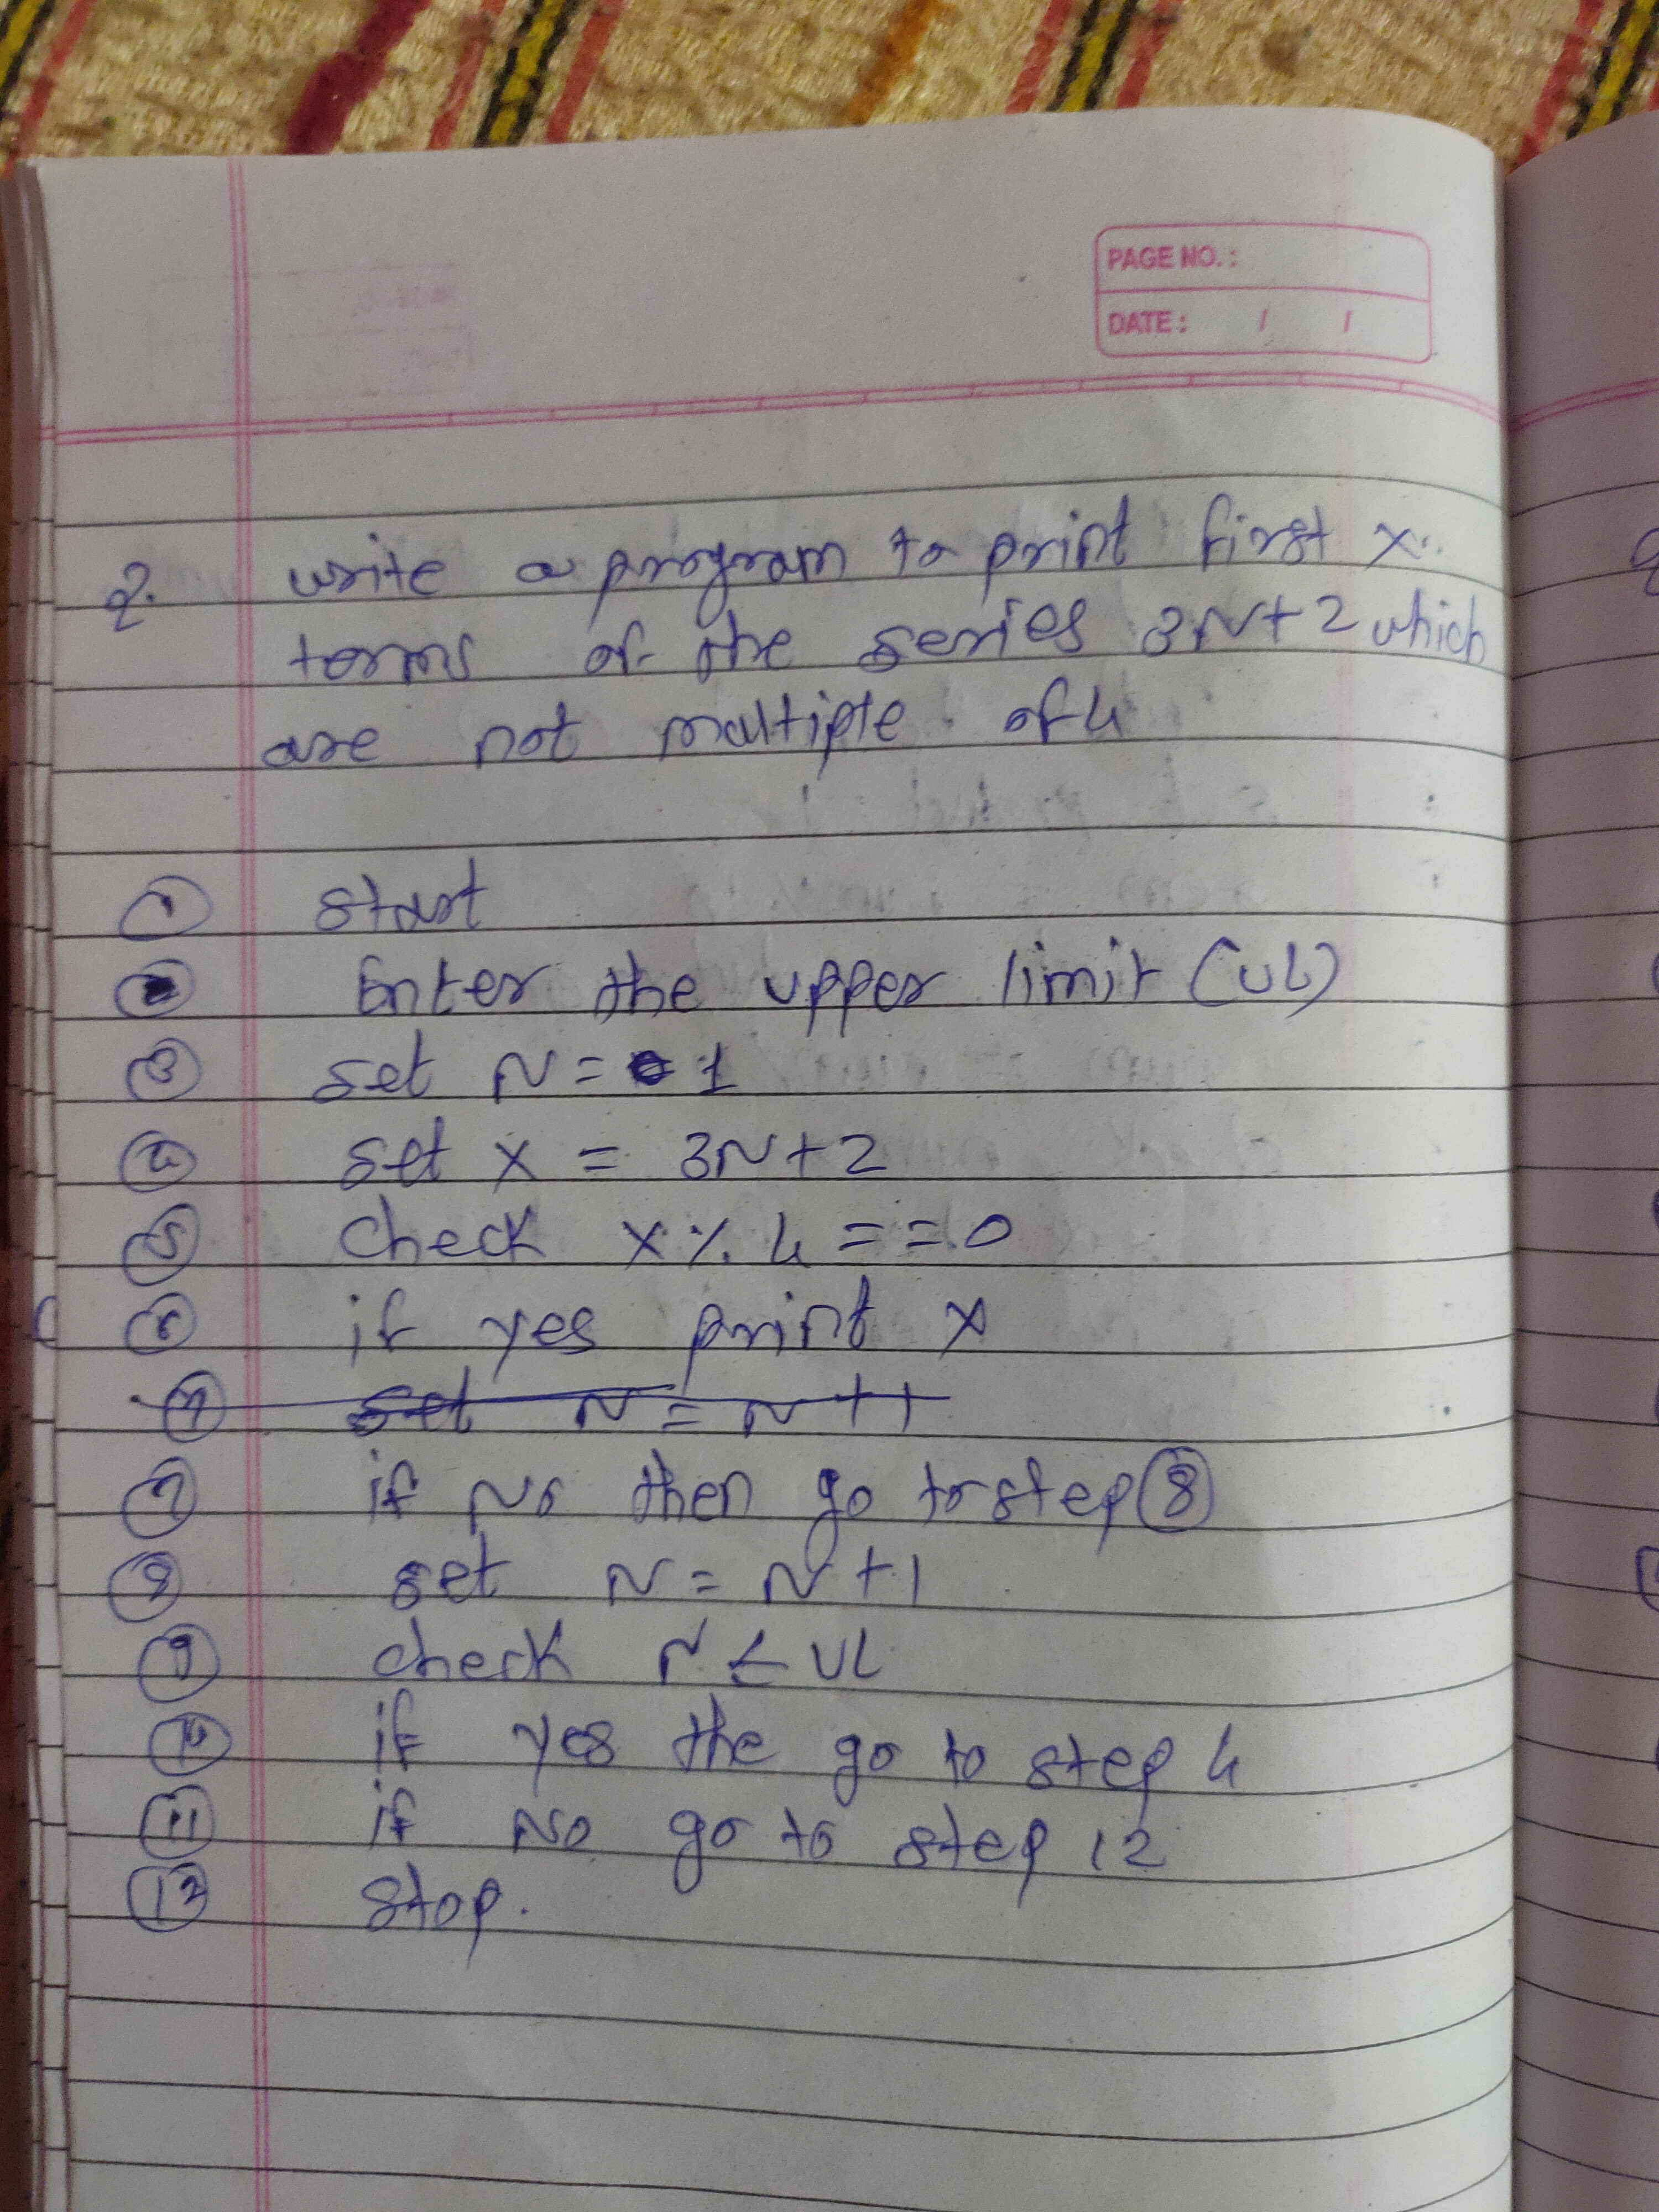 PAGE NO.:
DATE: / /
Q. write a program to print first x
terms of the series 3N+2 which
are not multiple of 4
① start
② Enter the upper limit (UL)
③ set N = 1
④ set x = 3N+2
⑤ check x % 4 == 0
⑥ if yes print x
⑦ set N = N+1
⑦ if No then go to step ⑧
⑧ set N = N+1
⑨ check N ≤ UL
⑩ if yes the go to step 4
⑪ if No go to step 12
⑫ stop.